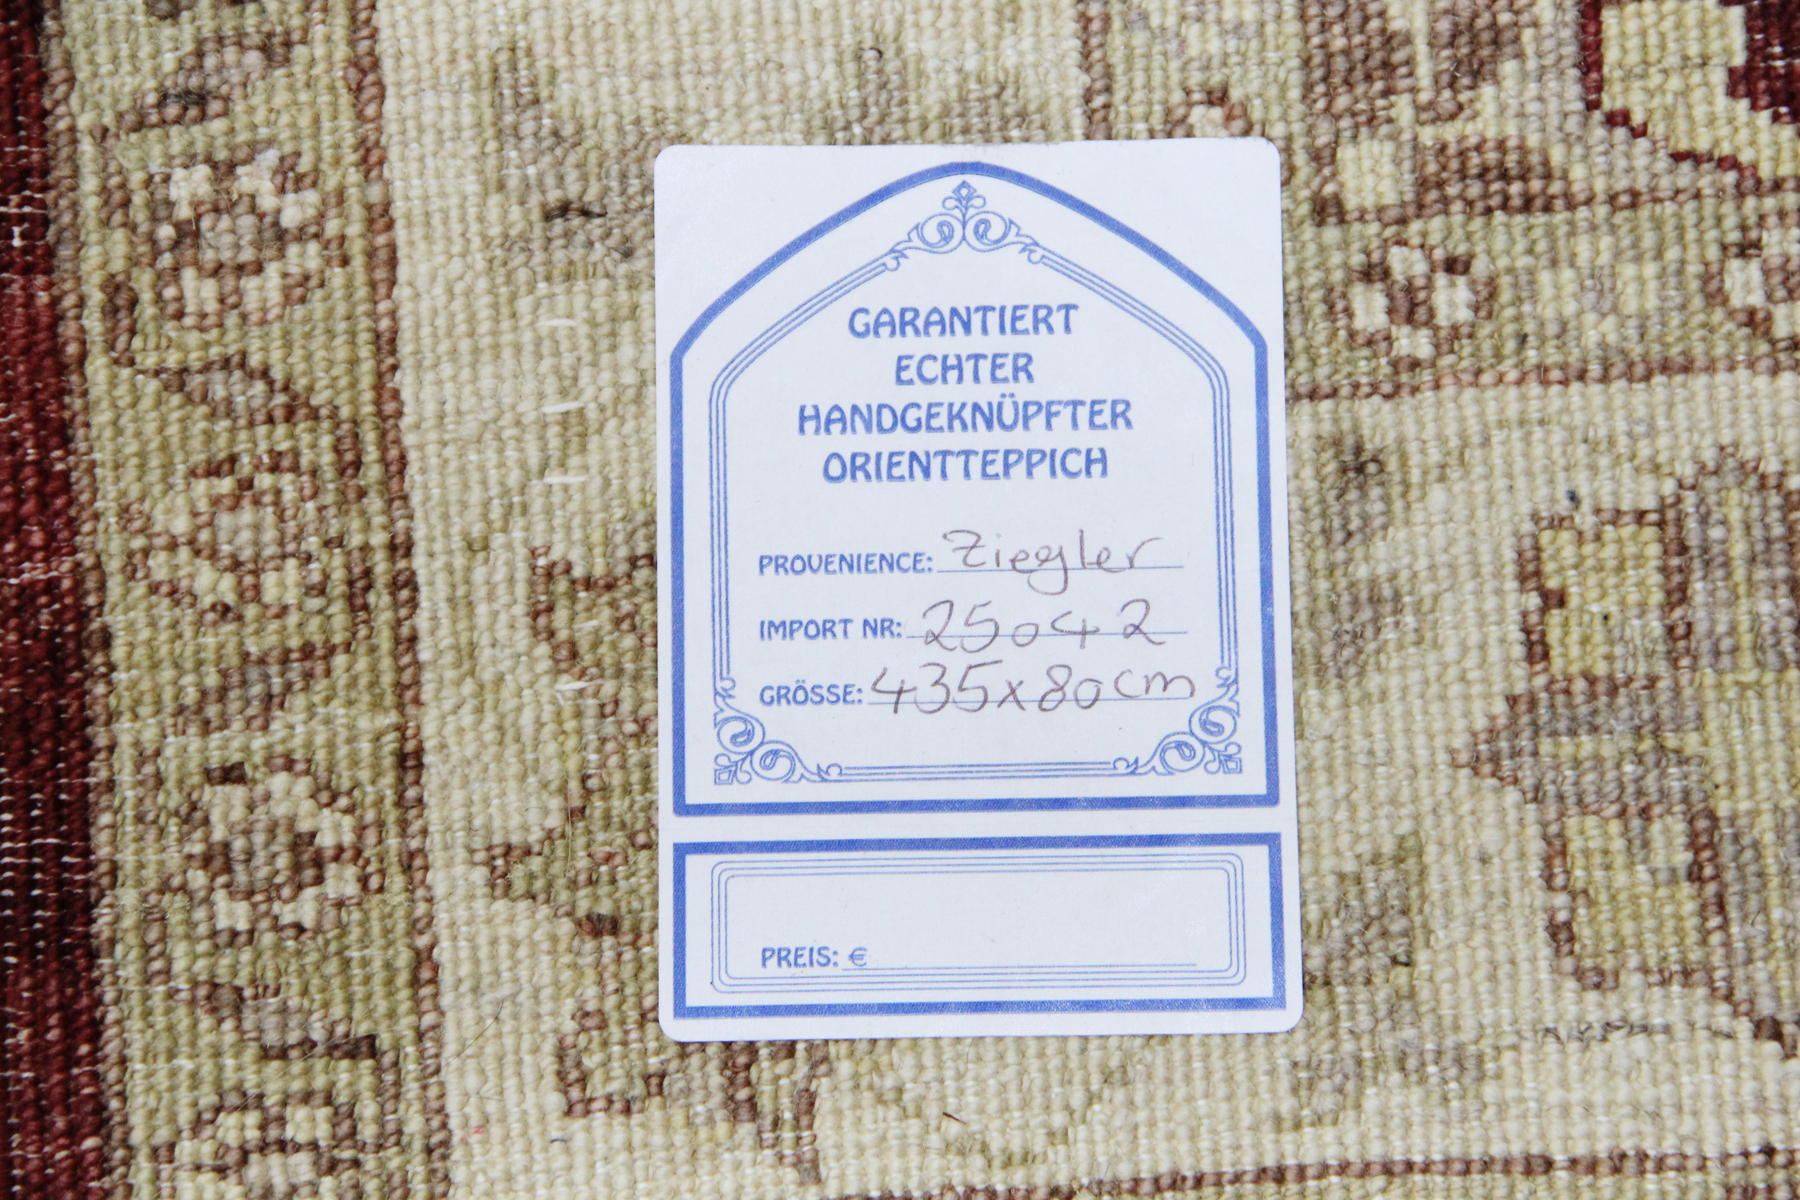 GARANTIERT
ECHTER
HANDGEKNÜPFTER
ORIENTTEPPICH
PROVENIENCE: Ziegler
IMPORT NR: 25042
GRÖSSE: 435x80cm
PREIS: €